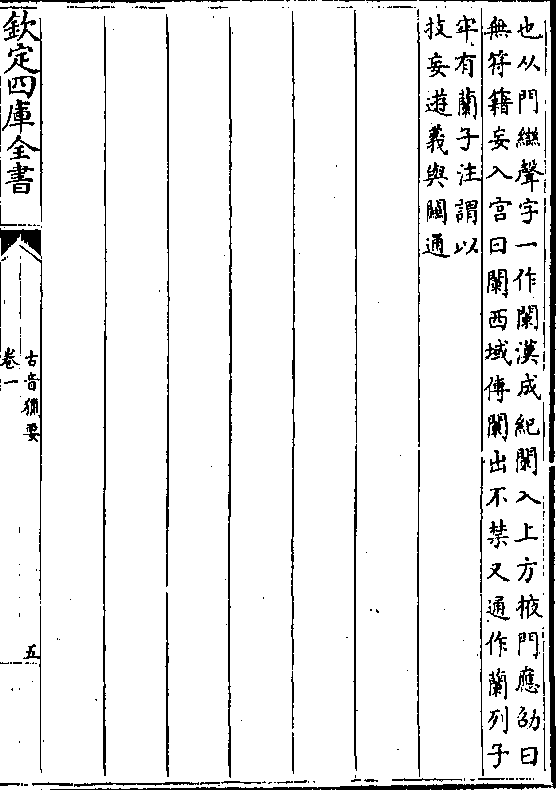 也从門䜌聲字一作闌漢成紀闌入上方掖門應劭曰
無符籍妄入宫曰闌西域傳闌出不禁又通作蘭列子
宋有蘭子注謂以
技妄遊義與闌通
欽定四庫全書
古音獵要
卷一
五